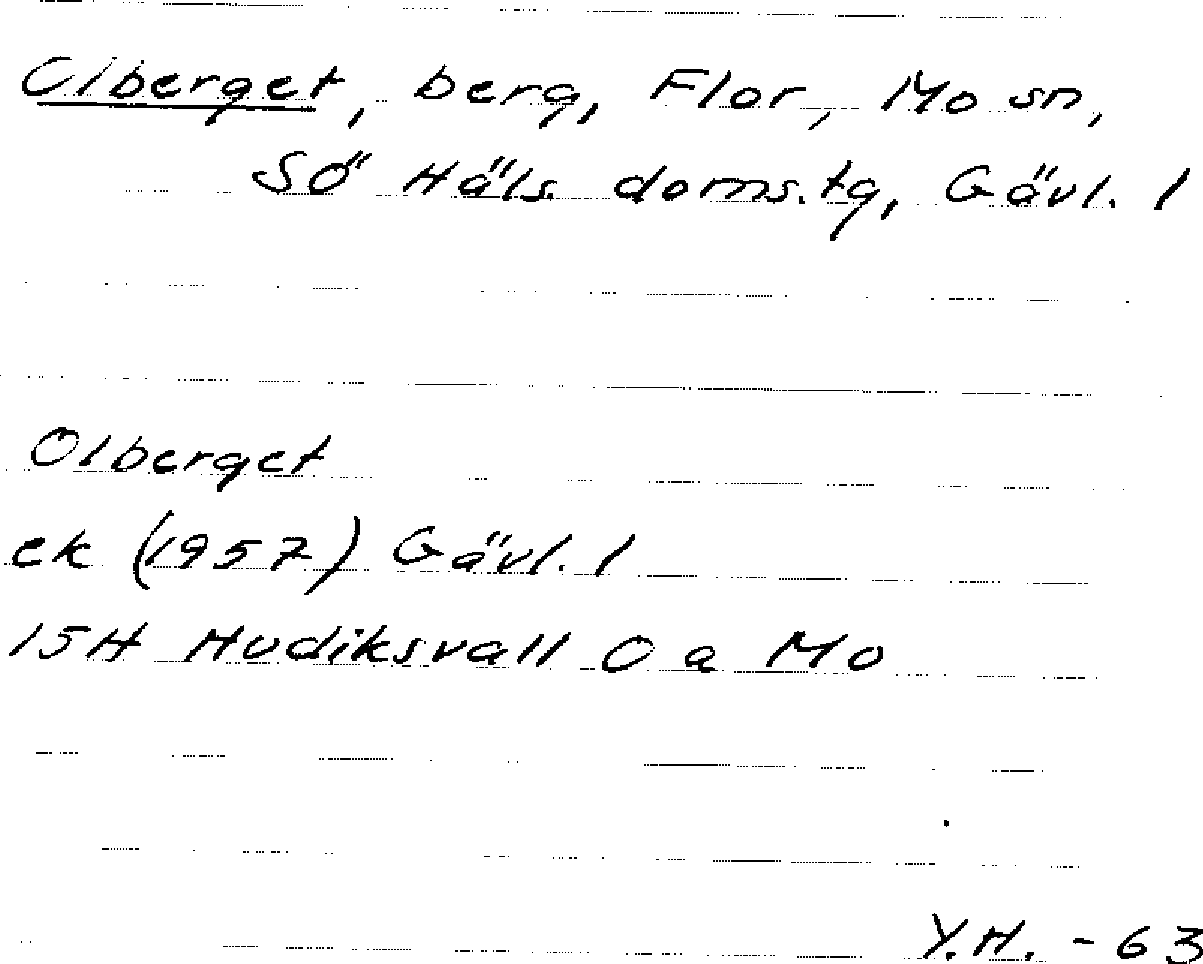 Olberget, berg, Flor, Mo sn,
Sö Häls. doms.tg, Gävl. l
Olberget
ek (1957) Gävl. l
15H Hudiksvall 0 a Mo
Y.H. - 63